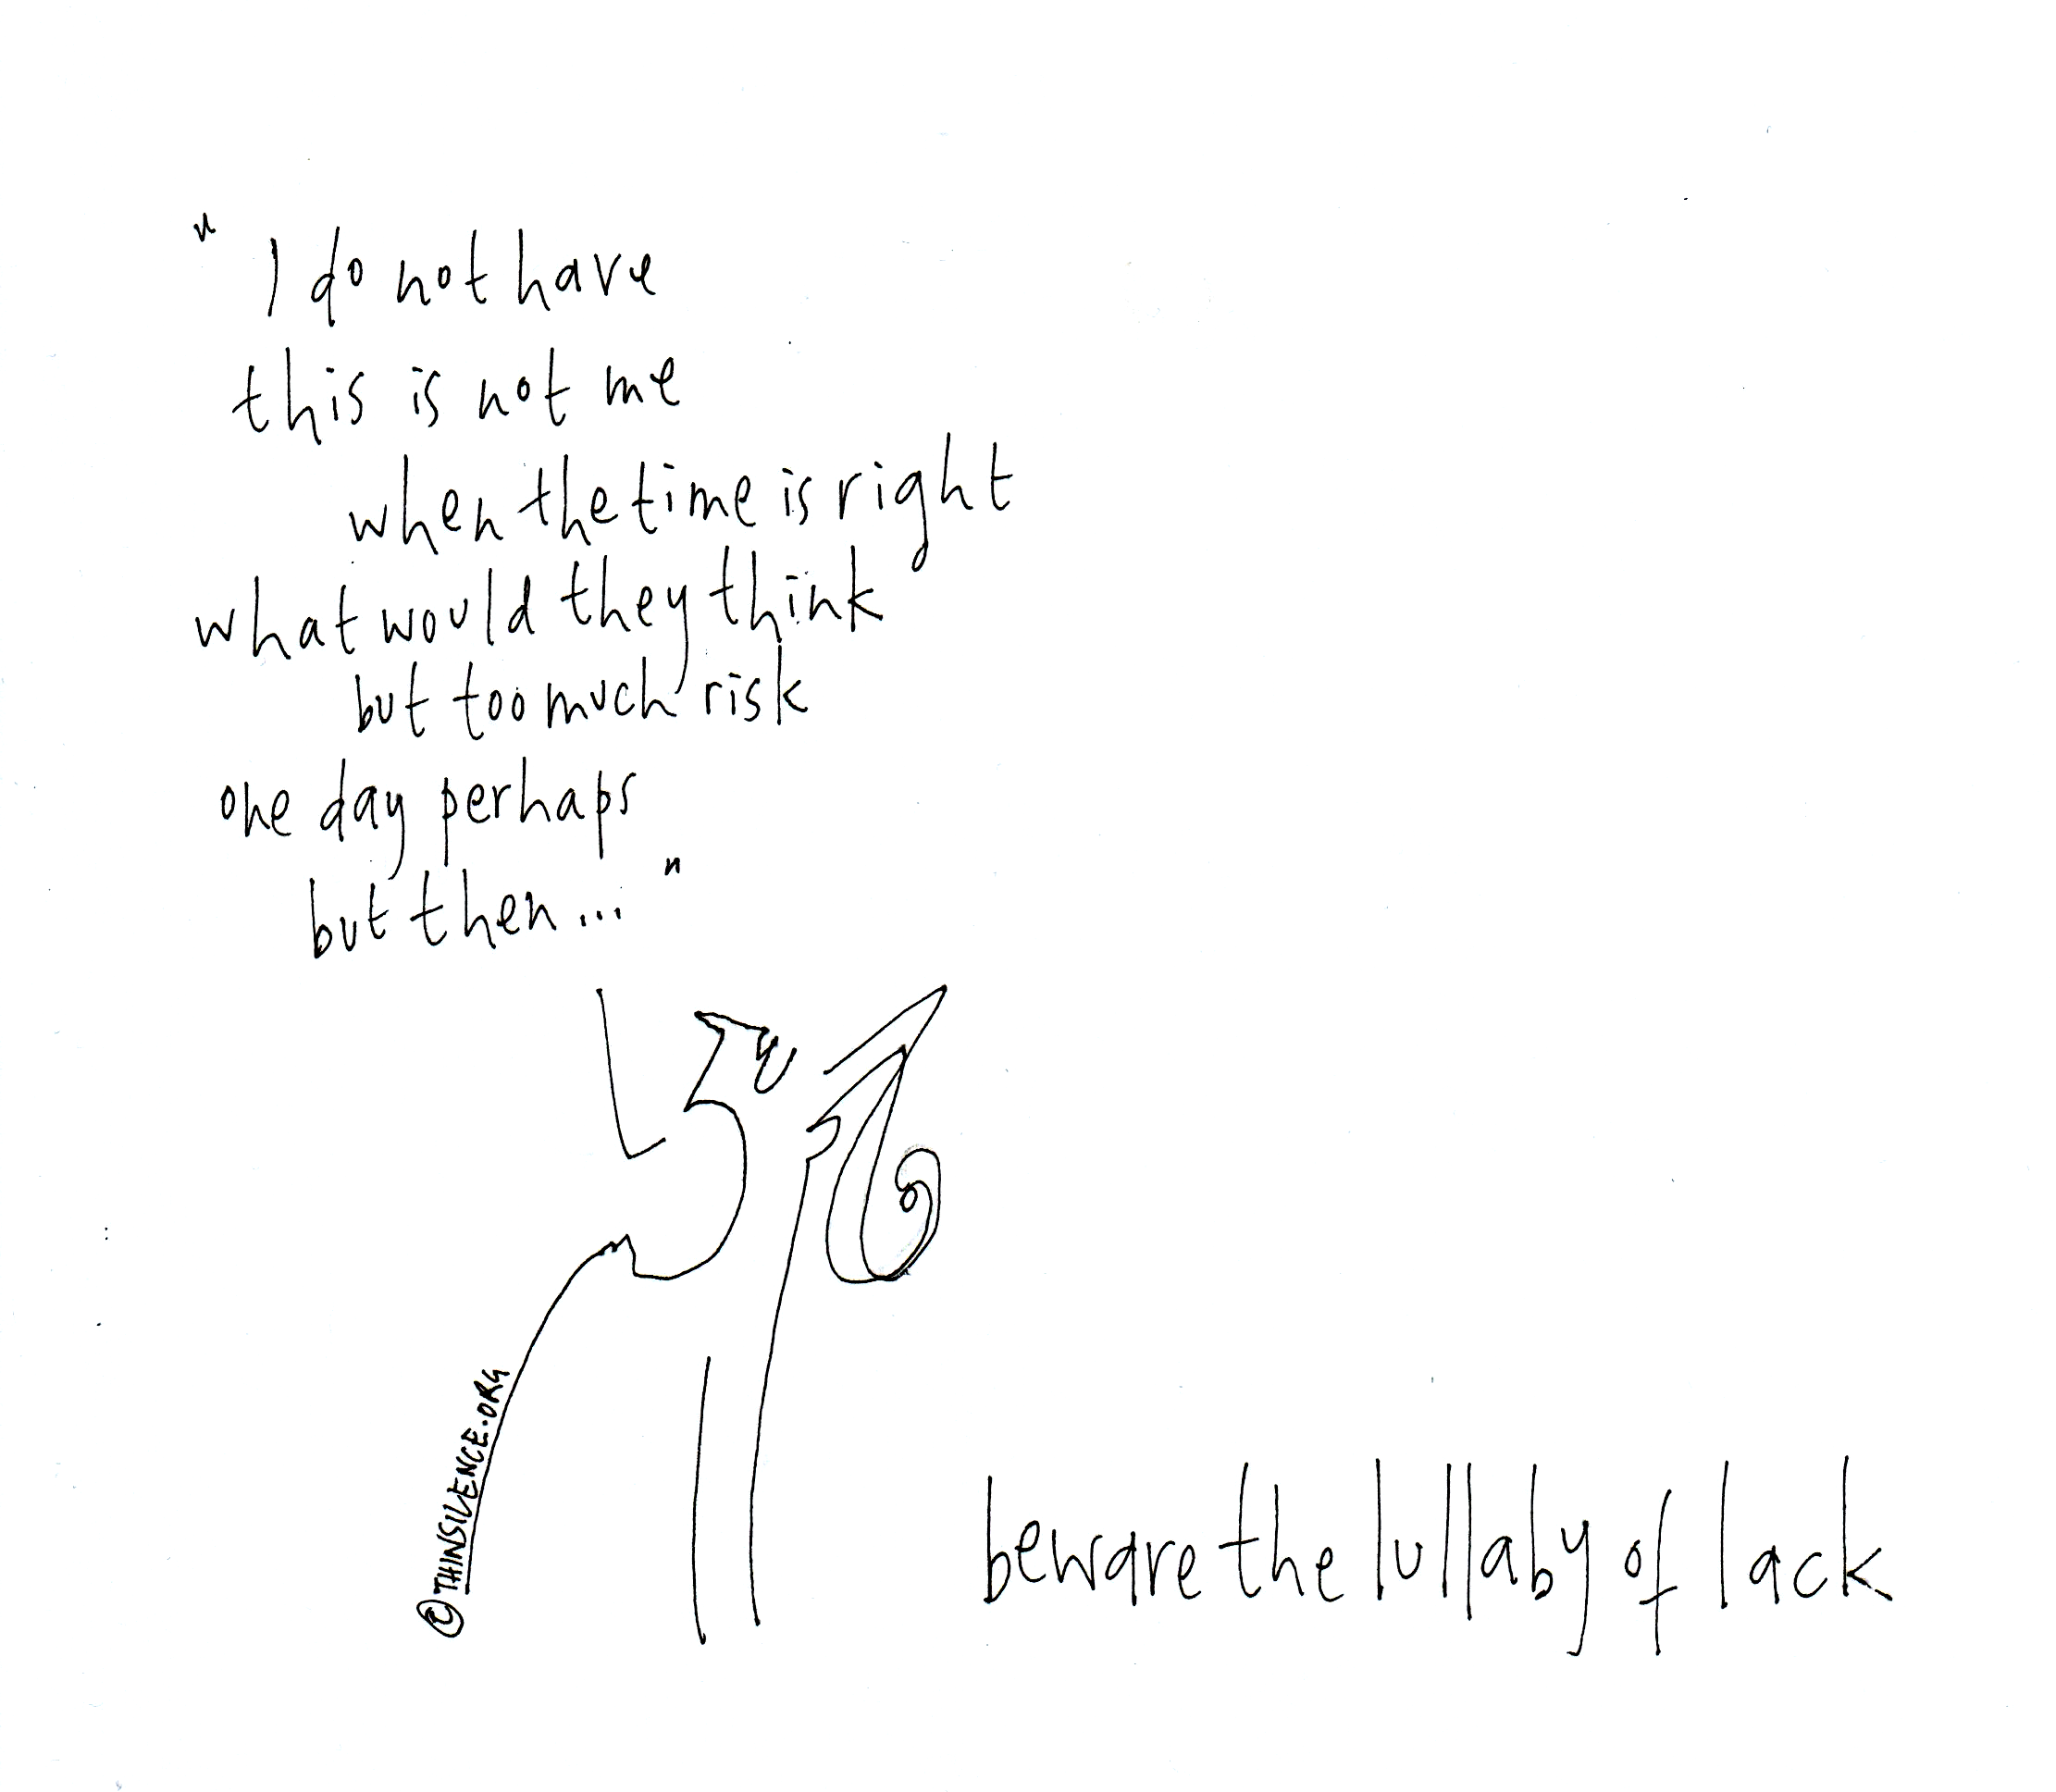 "I do not have
this is not me
when the time is right
what would they think
but too much risk
one day perhaps
but then..."
© THINSILENCE.ORG
beware the lullaby of lack